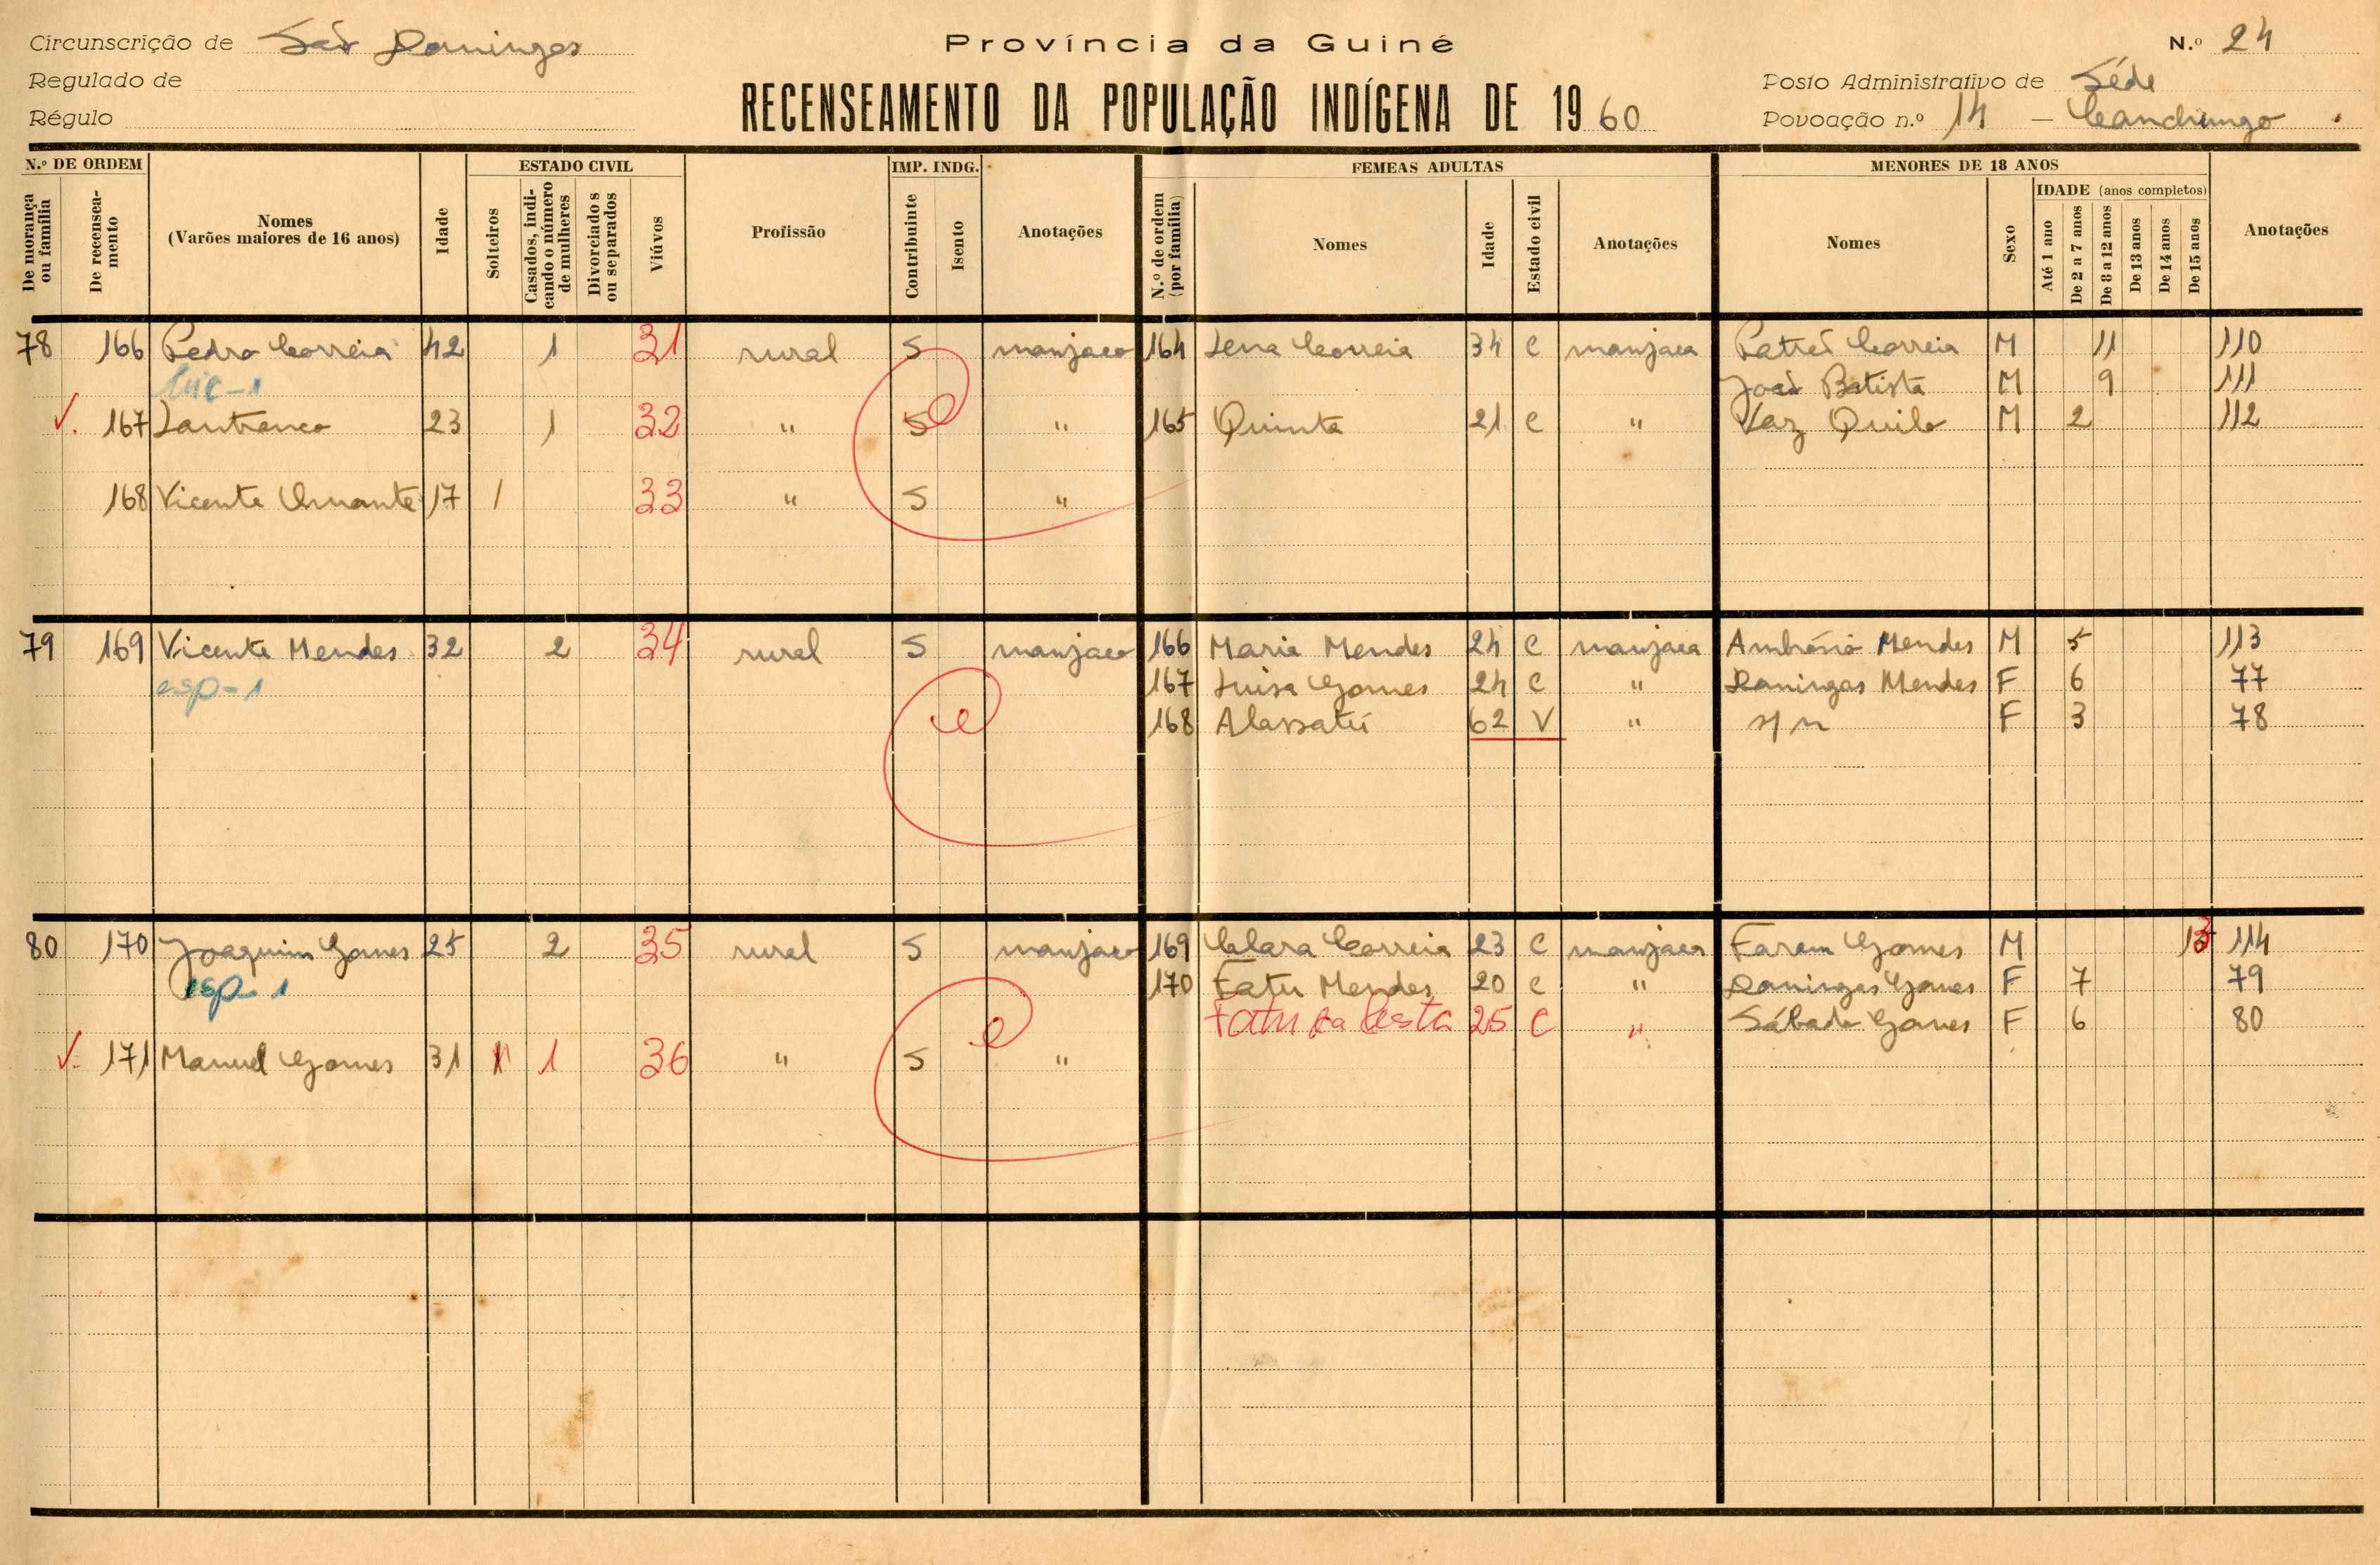 Circunscrição de São Domingos
Província da Guiné
N.º 24
Regulado de
Régulo
RECENSEAMENTO DA POPULAÇÃO INDÍGENA DE 1960
Posto Administrativo de Séde
Povoação n.º 14 — Canchungo
N.º DE ORDEM
De morança ou família
De recenseamento
Nomes
(Varões maiores de 16 anos)
Idade
ESTADO CIVIL
Solteiros
Casados, indicando o número de mulheres
Divorciados ou separados
Viúvos
Profissão
IMP. INDG.
Contribuinte
Isento
Anotações
FEMEAS ADULTAS
N.º de ordem (por família)
Nomes
Idade
Estado civil
Anotações
MENORES DE 18 ANOS
Nomes
Sexo
IDADE (anos completos)
Até 1 ano
De 2 a 7 anos
De 8 a 12 anos
De 13 anos
De 14 anos
De 15 anos
Anotações
78 166 Pedro Correia 42 1 31 rural S manjaco 164 Lena Correia 34 C manjaca Correia M 11 110
João Batista M 9 111
167 23 1 32 " S " 165 Quinta 21 C " Vaz M 2 112
168 Vicente 17 1 33 " S "
79 169 Vicente Mendes 32 2 34 rural S manjaco 166 Maria Mendes 24 C manjaca Ambrósio Mendes M 5 113
esp-1 167 Luisa Gomes 24 C " Domingas Mendes F 6 77
168 Alassatú 62 V " s/n F 3 78
80 170 Joaquim Gomes 25 2 35 rural S manjaco 169 Clara Correia 23 C manjaca Farem Gomes M 114
esp-1 170 Fatu Mendes 20 C " Domingas Gomes F 7 79
Fatu da Costa 25 C " Sábado Gomes F 6 80
171 Manuel Gomes 31 1 36 " S "